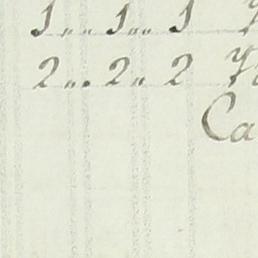 1 ... 1 ... 1
2 ... 2 .. 2
Ca